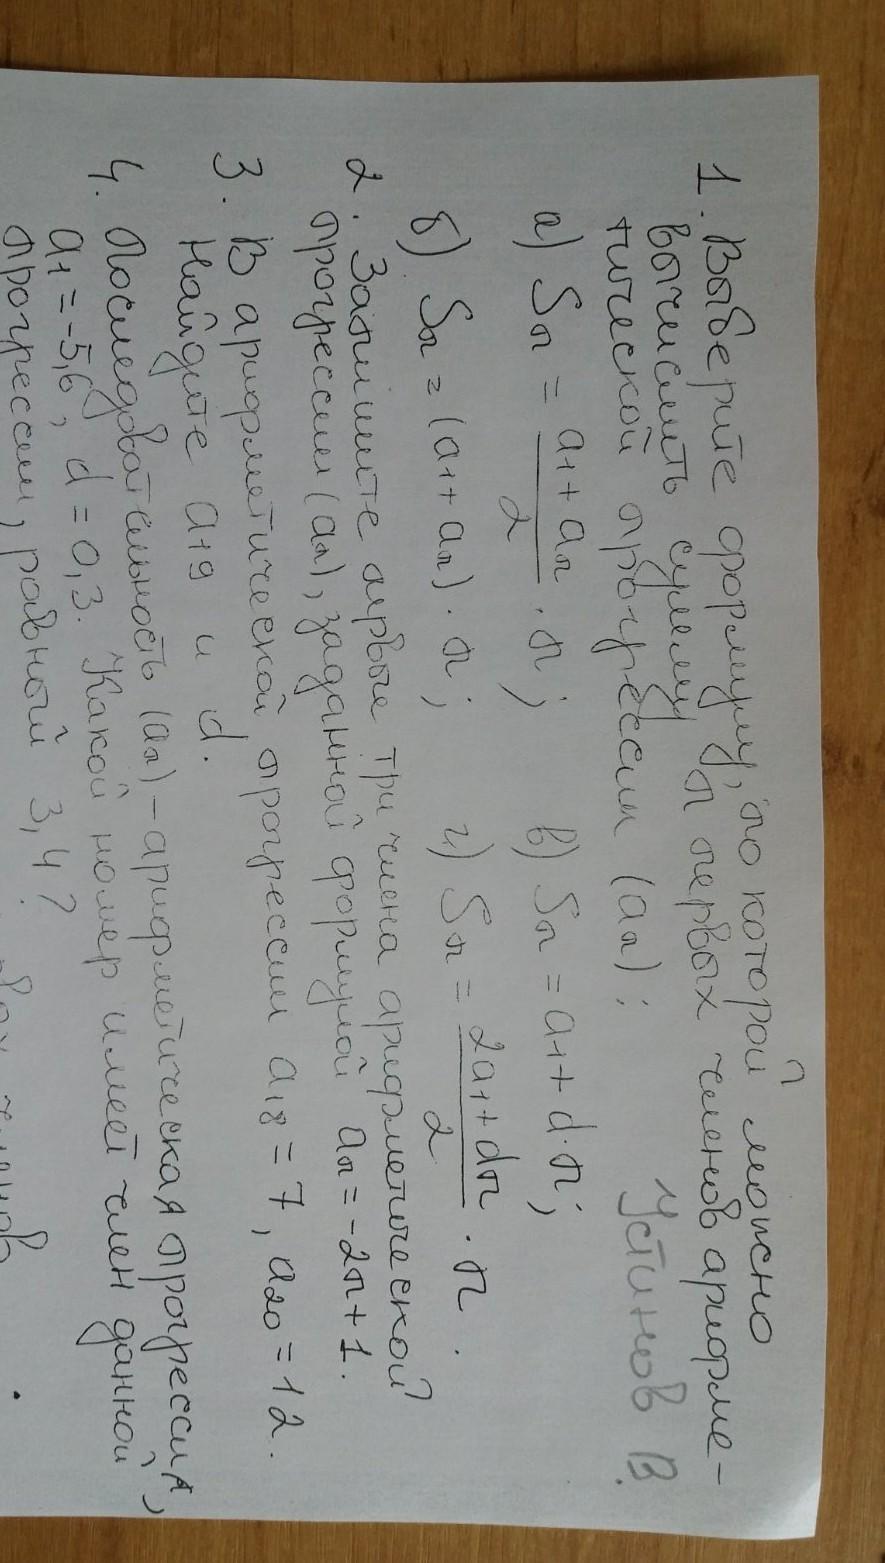 1. Выберите формулу, по которой можно
вычислить сумму n первых членов арифме-
тической прогрессии (an):
Устинов В.
а) Sn = a1 + an / 2 · n; в) Sn = a1 + d · n;
б) Sn = (a1 + an) · n; г) Sn = 2a1 + dn / 2 · n.
2. Запишите первые три члена арифметической
прогрессии (an), заданной формулой an = -2n + 1.
3. В арифметической прогрессии a18 = 7, a20 = 12.
Найдите a19 и d.
4. Последовательность (an) – арифметическая прогрессия,
a1 = -5,6, d = 0,3. Какой номер имеет член данной
прогрессии, равный 3,4?